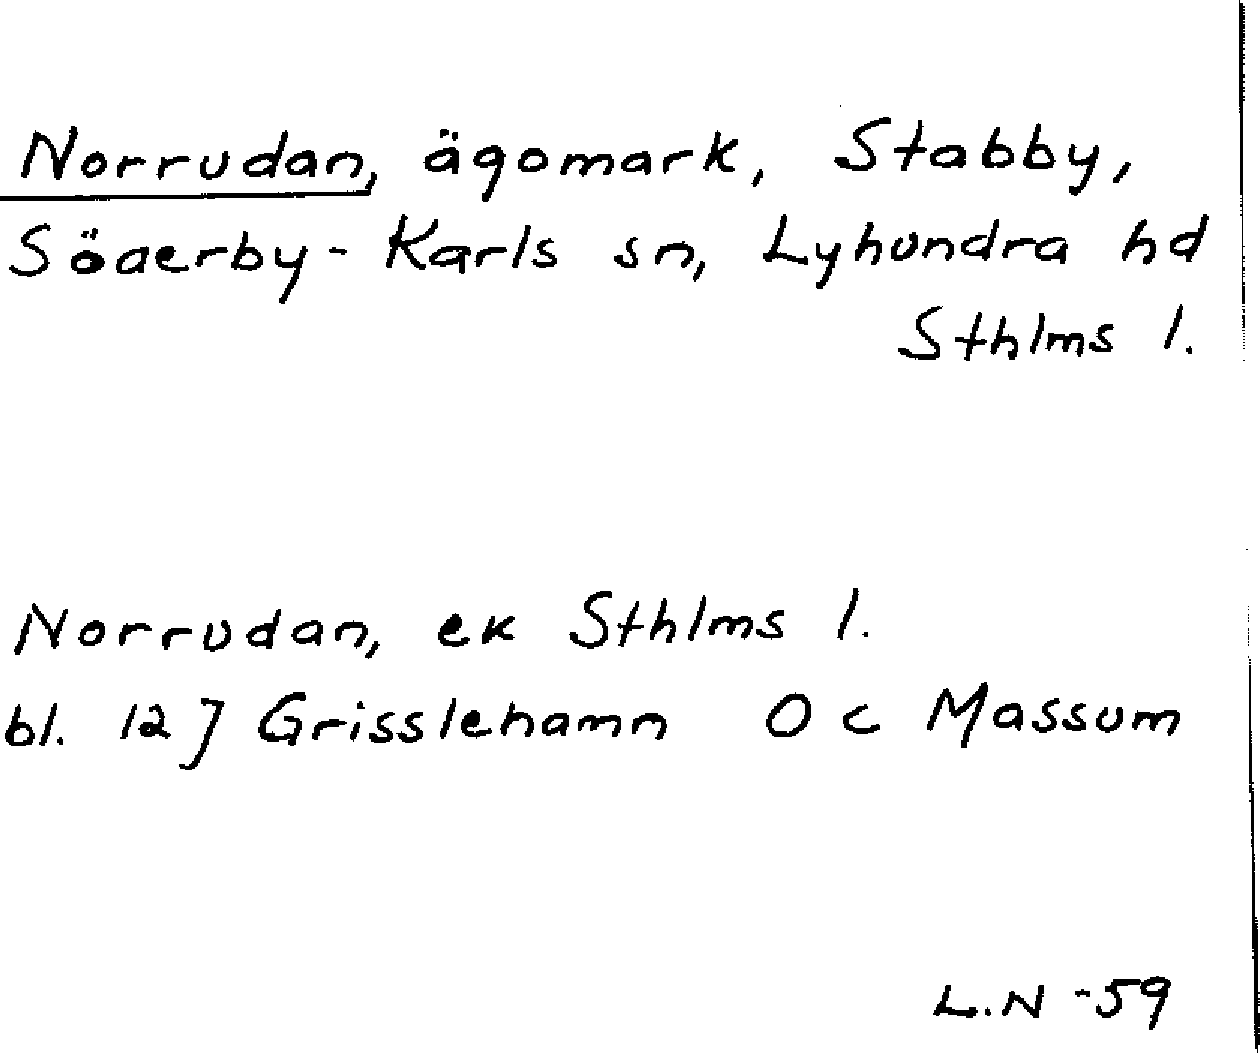 Norrudan, ägomark, Stabby,
Söderby-Karls sn, Lyhundra hd
Sthlms l.
Norrudan, ek Sthlms l.
bl. 12 J Grisslehamn O c Massum
L.N -59